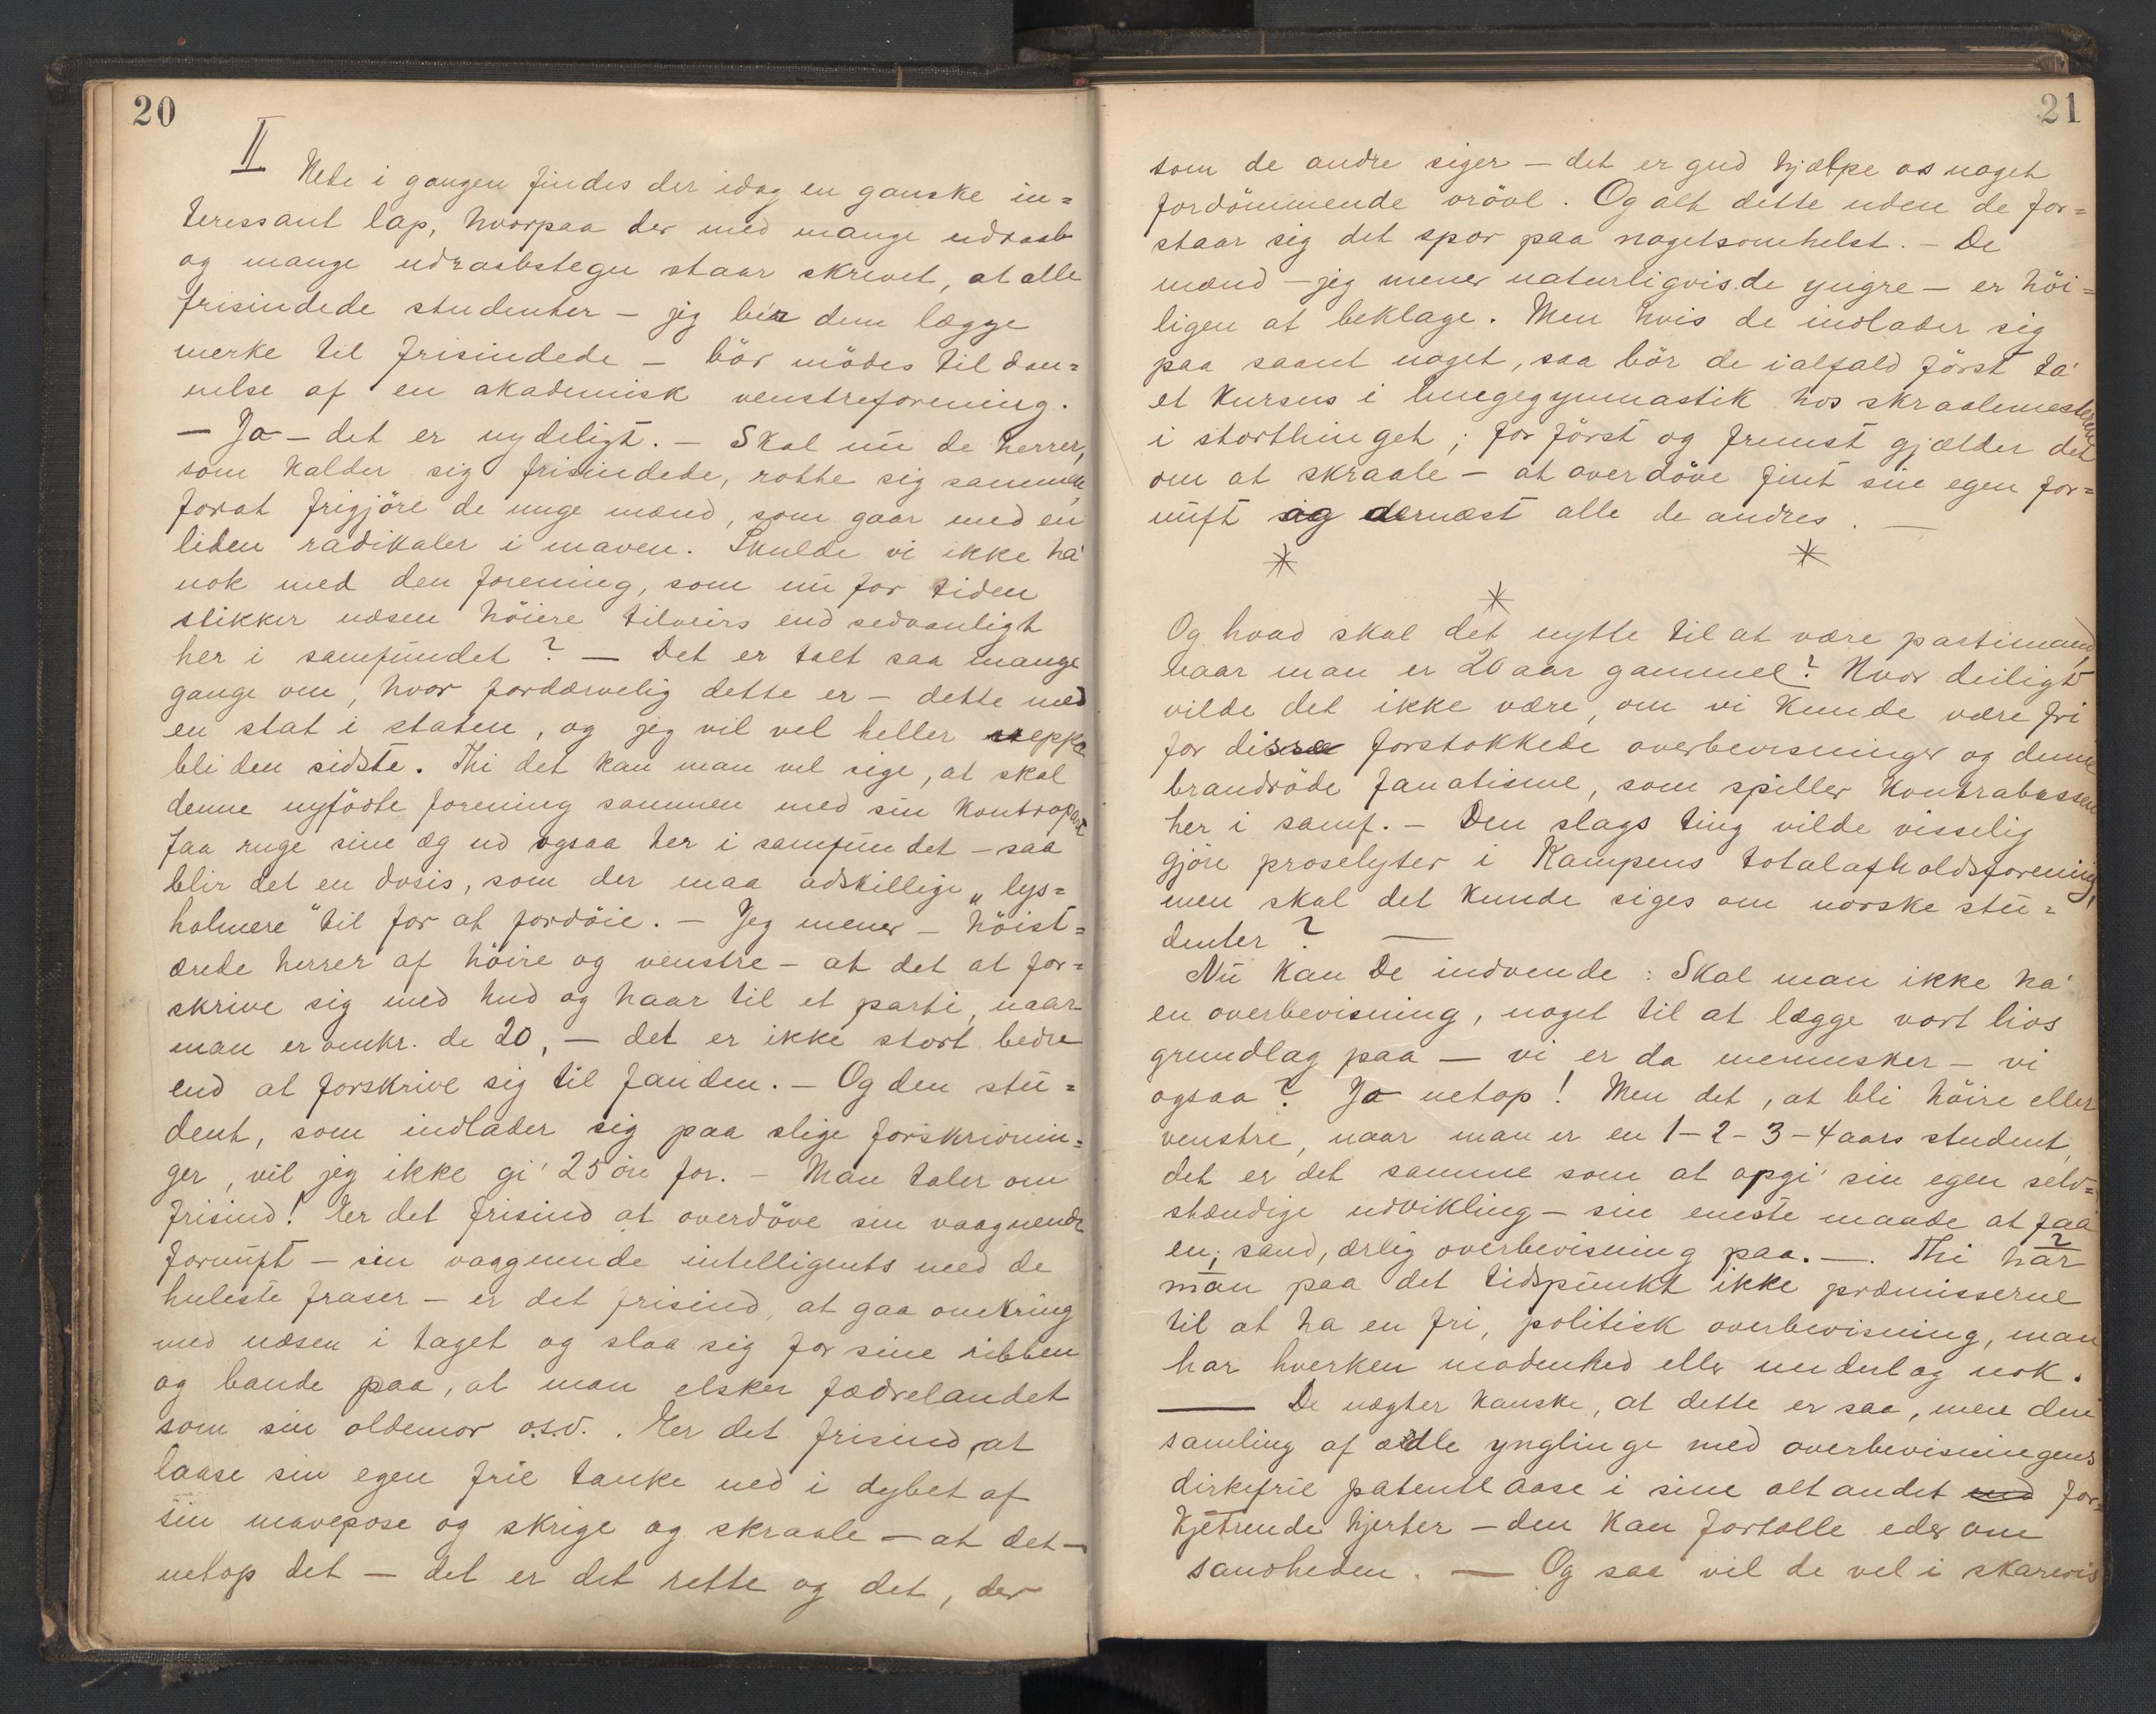 20
II
Nede i gangen findes der idag en ganske in=
teressant lap, hvorpaa der med mange udraab
og mange udraabstegn staar skrevet, at alle
frisindede studenter – jeg ber dem lægge
merke til frisindede – bör mödes til dan=
nelse af en akademisk venstreforening.
– Ja – det er nydeligt. – Skal nu de herrer,
som kalder sig frisindede, rotte sig sammen,
forat frigjöre de unge mænd, som gaar med en
liden radikaler i maven. Skulde vi ikke ha'
nok med den forening, som nu for tiden
stikker næsen höiere tilveirs end sedvanligt
her i samfundet? – Det er talt saa mange
gange om, hvor fordærvelig dette er – dette med
en stat i staten, og jeg vil vel heller neppe
bli den sidste. Thi det kan man vel sige, at skal
denne nyfödte forening sammen med sin kontrapart
faa ruge sine æg ud ogsaa her i samfundet – saa
blir det en dosis, som der maa adskillige „lys=
holmere" til for at fordöie. – Jeg mener – höist=
ærede herrer af höire og venstre – at det at for=
skrive sig med hud og haar til et parti, naar
man er omkr. de 20, – det er ikke stort bedre
end at forskrive sig til fanden. – Og den stu=
dent, som indlader sig paa slige forskrivnin=
ger, vil jeg ikke gi' 25 öre for. – Man taler om
frisind! Er det frisind at overdöve sin vaagnende
fornuft – sin vaagnende intelligents med de
huleste fraser – er det frisind, at gaa omkring
med næsen i taget og slaa sig for sine ribben
og bande paa, at man elsker fædrelandet
som sin oldemor o.s.v. . Er det frisind, at
laase sin egen frie tanke ned i dybet af
sin mavepose og skrige og skraale – at det –
netop det – det er det rette og det, der
21
som de andre siger – det er gud hjælpe os noget
fordömmende vrövl. Og alt dette uden de for=
staar sig det spor paa nogetsomhelst. – De
mænd – jeg mener naturligvis de yngre – er höi=
ligen at beklage. Men hvis de indlader sig
paa saant noget, saa bör de ialfald först ta'
et kursus i lungegymnastik hos skraalemesteren
i storthinget; for först og fremst gjælder det
om at skraale – at overdöve fint sin egen for=
nuft og dernæst alle de andres. —
* * *
Og hvad skal det nytte til at være partimand,
naar man er 20 aar gammel? Hvor deiligt
vilde det ikke være, om vi kunde være fri
for disse forstokkede overbevisninger og denne
brandröde fanatisme, som spiller kontrabassen
her i samf. – Den slags ting vilde visselig
gjöre proselyter i Kampens totalafholdsforening,
men skal det kunde siges om norske stu=
denter? —
Nu kan De indvende: Skal man ikke ha'
en overbevisning, noget til at lægge vort livs
grundlag paa – vi er da mennesker – vi
ogsaa? Ja netop! Men det, at bli höire eller
venstre, naar man er en 1-2-3-4 aars student,
det er det samme som at opgi' sin egen selv=
stændige udvikling – sin eneste maade at faa
en, sand, ærlig overbevisning paa. – . Thi har
man paa det tidspunkt ikke præmisserne
til at ha en fri, politisk overbevisning, man
har hverken modenhed eller underlag nok.
— De nægter kanske, at dette er saa, men den
samling af ædle ynglinge med overbevisningens
dirkefrie patentlaase i sine alt andet end for=
kjetrende hjerter – den kan fortælle eder om
sandheden. — Og saa vil de vel i skarevis